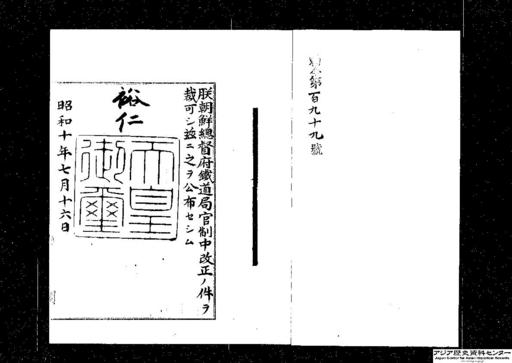 勅令第百九十九號
朕朝鮮總督府鐵道局官制中改正ノ件ヲ
裁可シ茲ニ之ヲ公布セシム
裕仁
天皇
御璽
昭和十年七月十六日
アジア歴史資料センター
Japan Center for Asian Historical Records